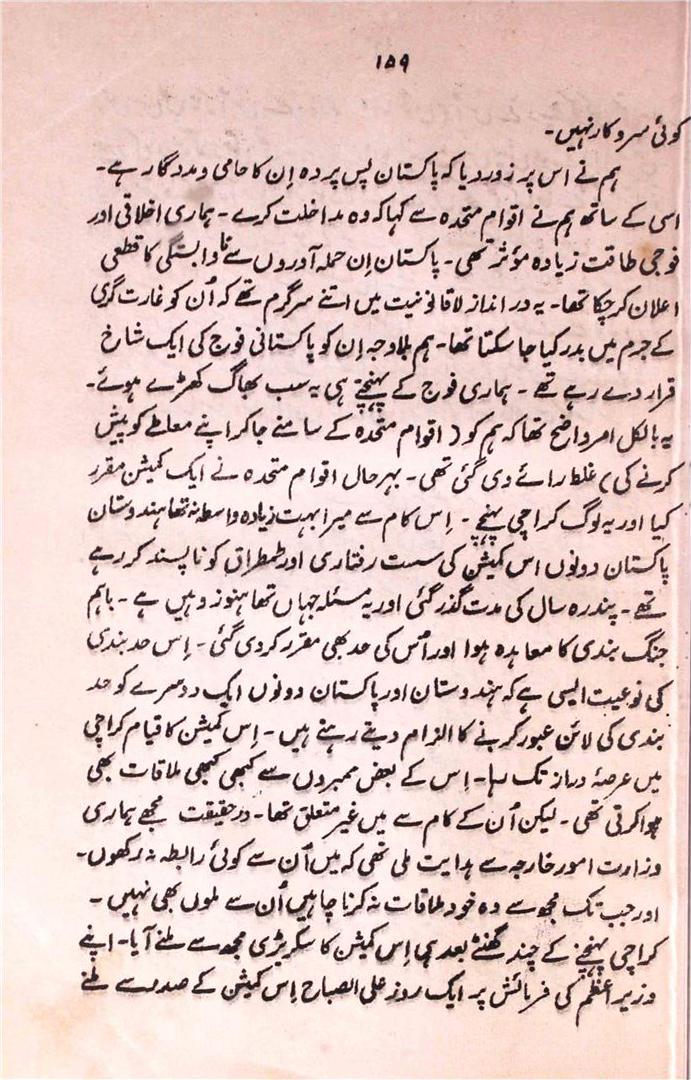 ۱۵۹
کوئی سروکار نہیں۔
ہم نے اس پر زور دیا کہ پاکستان پس پردہ اِن کا حامی و مددگار ہے۔
اسی کے ساتھ ہم نے اقوام متحدہ سے کہا کہ وہ مداخلت کرے۔ ہماری اخلاقی اور
فوجی طاقت زیادہ مؤثر تھی۔ پاکستان اِن حملہ آوروں سے ناوابستگی کا قطعی
اعلان کر چکا تھا۔ یہ در انداز لاقانونیت میں اتنے سرگرم تھے کہ اُن کو غارت گری
کے جرم میں بدر کیا جا سکتا تھا۔ ہم بلاوجہ اِن کو پاکستانی فوج کی ایک شاخ
قرار دے رہے تھے۔ ہماری فوج کے پہنچتے ہی یہ سب بھاگ کھڑے ہوئے۔
یہ بالکل امر واضح تھا کہ ہم کو (اقوام متحدہ کے سامنے جا کر اپنے معاملے کو پیش
کرنے کی) غلط رائے دی گئی تھی۔ بہرحال اقوام متحدہ نے ایک کمیشن مقرر
کیا اور یہ لوگ کراچی پہنچے۔ اِس کام سے میرا بہت زیادہ واسطہ نہ تھا ہندوستان
پاکستان دونوں اس کمیشن کی سست رفتاری اور طمطراق کو ناپسند کر رہے
تھے۔ پندرہ سال کی مدت گذر گئی اور یہ مسئلہ جہاں تھا ہنوز وہیں ہے۔ باہم
جنگ بندی کا معاہدہ ہوا اور اُس کی حد بھی مقرر کر دی گئی۔ اِس حد بندی
کی نوعیت ایسی ہے کہ ہندوستان اور پاکستان دونوں ایک دوسرے کو حد
بندی کی لائن عبور کرنے کا الزام دیتے رہتے ہیں۔ اِس کمیشن کا قیام کراچی
میں عرصۂ دراز تک رہا۔ اِس کے بعض ممبروں سے کبھی کبھی ملاقات بھی
ہوا کرتی تھی۔ لیکن اُن کے کام سے میں غیر متعلق تھا۔ درحقیقت مجھے ہماری
وزارت امور خارجہ سے ہدایت ملی تھی کہ میں اُن سے کوئی رابطہ نہ رکھوں۔
اور جب تک مجھ سے وہ خود ملاقات نہ کرنا چاہیں اُن سے ملوں بھی نہیں۔
کراچی پہنچنے کے چند گھنٹے بعد ہی اِس کمیشن کا سکریٹری مجھ سے ملنے آیا۔ اپنے
وزیر اعظم کی فرمائش پر ایک روز علی الصباح اِس کمیشن کے صدر سے ملنے